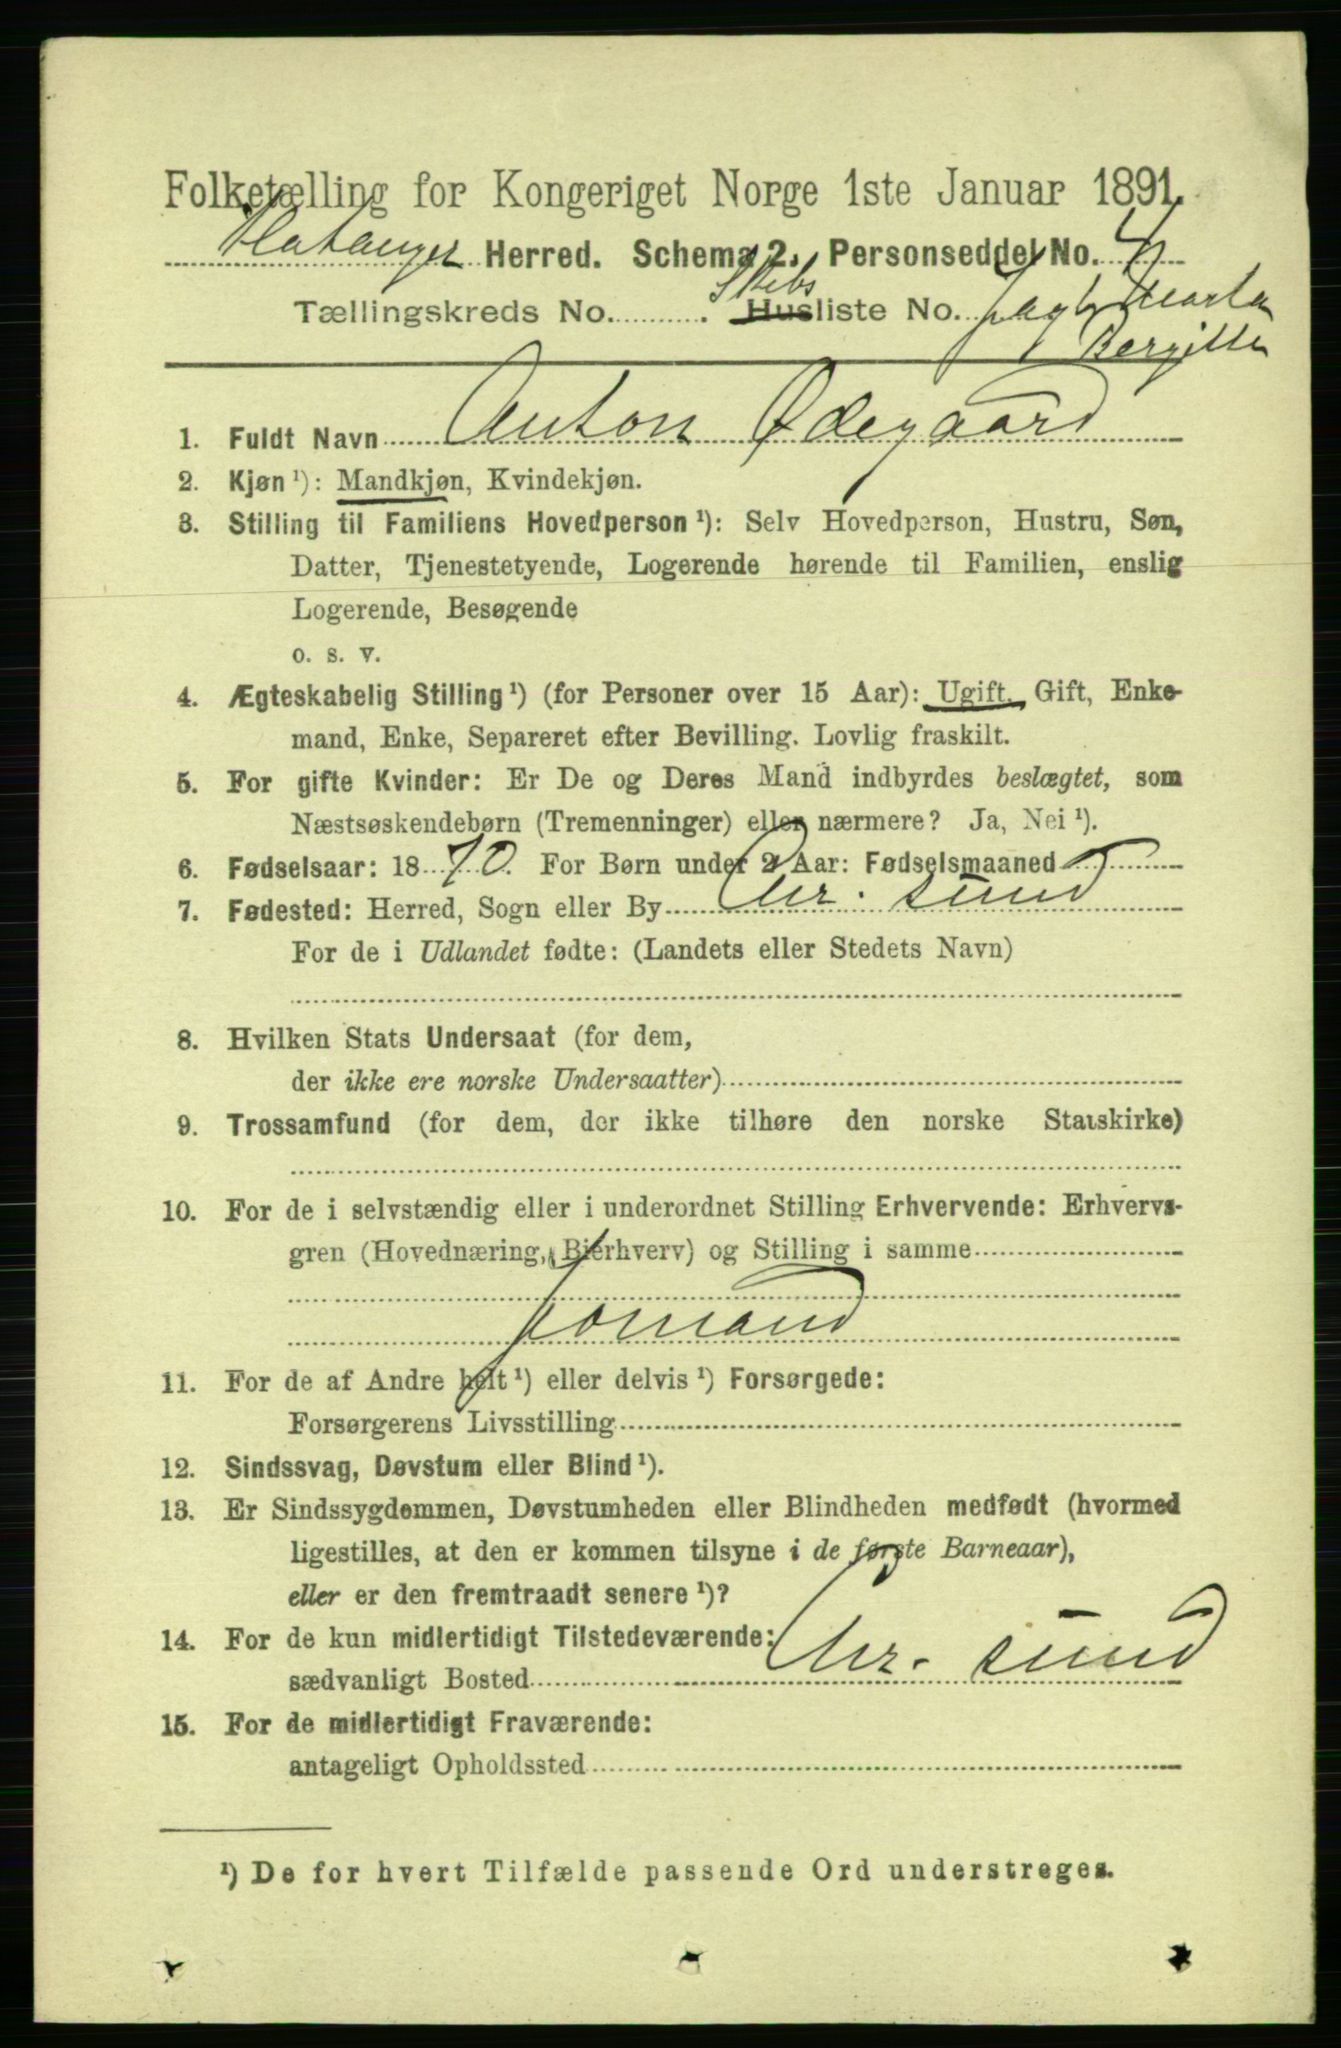 Folketælling for Kongeriget Norge 1ste Januar 1891.
Flatanger Herred. Schema 2. Personseddel No. 4
Tællingskreds No. . Skibs Husliste No. Jagt Marta
Bergitte
1. Fuldt Navn Anton Ødegaard
2. Kjøn ¹): Mandkjøn, Kvindekjøn.
3. Stilling til Familiens Hovedperson ¹): Selv Hovedperson, Hustru, Søn,
Datter, Tjenestetyende, Logerende hørende til Familien, enslig
Logerende, Besøgende
o. s. v.
4. Ægteskabelig Stilling ¹) (for Personer over 15 Aar): Ugift, Gift, Enke-
mand, Enke, Separeret efter Bevilling. Lovlig fraskilt.
5. For gifte Kvinder: Er De og Deres Mand indbyrdes beslægtet, som
Næstsøskendebørn (Tremenninger) eller nærmere? Ja, Nei ¹).
6. Fødselsaar: 1870. For Børn under 2 Aar: Fødselsmaaned
7. Fødested: Herred, Sogn eller By Chr. sund
For de i Udlandet fødte: (Landets eller Stedets Navn)
8. Hvilken Stats Undersaat (for dem,
der ikke ere norske Undersaatter)
9. Trossamfund (for dem, der ikke tilhøre den norske Statskirke)
10. For de i selvstændig eller i underordnet Stilling Erhvervende: Erhvervs-
gren (Hovednæring, Bierhverv) og Stilling i samme
Jomand
11. For de af Andre helt ¹) eller delvis ¹) Forsørgede:
Forsørgerens Livsstilling
12. Sindssvag, Døvstum eller Blind ¹).
13. Er Sindssygdommen, Døvstumheden eller Blindheden medfødt (hvormed
ligestilles, at den er kommen tilsyne i de første Barneaar),
eller er den fremtraadt senere ¹)?
14. For de kun midlertidigt Tilstedeværende:
sædvanligt Bosted Chr. sund
15. For de midlertidigt Fraværende:
antageligt Opholdssted
¹) De for hvert Tilfælde passende Ord understreges.